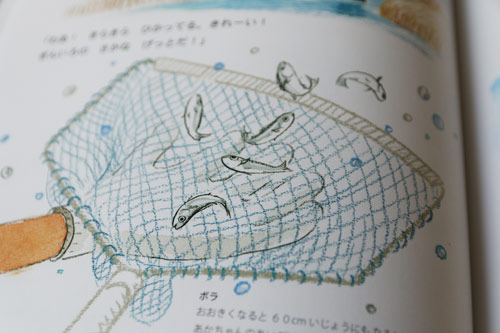 きらきら ひかってる。きれーい！
ぎんいろの さかな げっとだ！」
ボラ
おおきくなると 60cmいじょうにも
あかちゃんの